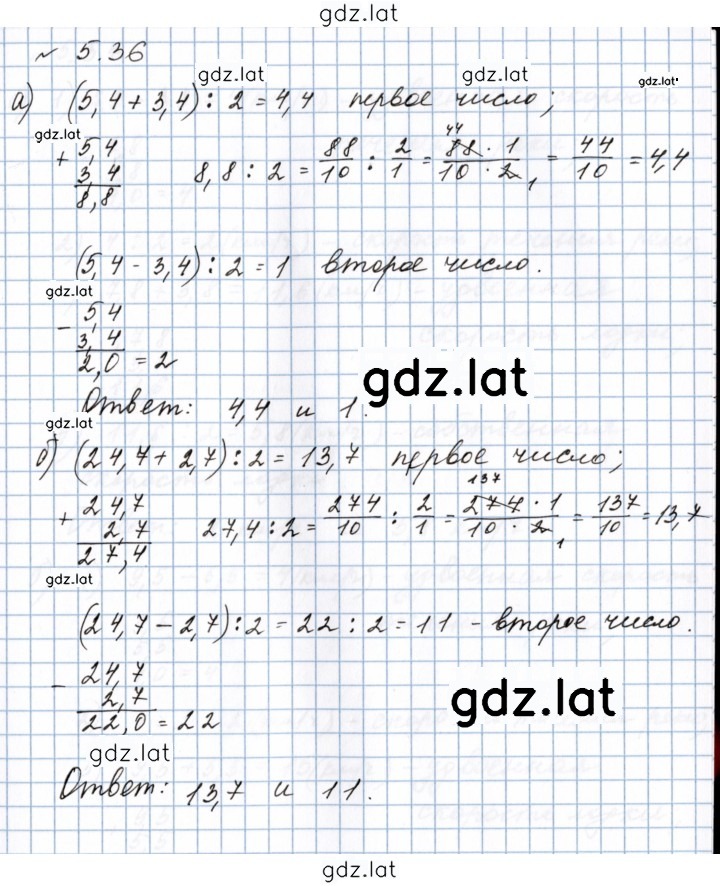 gdz.lat
№ 5.36
gdz.lat gdz.lat gdz.lat
а) (5,4 + 3,4) : 2 = 4,4 первое число;
gdz.lat
+ 5,4
3,4
8,8
8,8 : 2 = 88/10 : 2/1 = 44 88 · 1 / 10 · 2 1 = 44/10 = 4,4
(5,4 - 3,4) : 2 = 1 второе число.
gdz.lat
- 5,4
3,4
2,0 = 2
gdz.lat
Ответ: 4,4 и 1.
gdz.lat
б) (24,7 + 2,7) : 2 = 13,7 первое число;
+ 24,7
2,7
27,4
27,4 : 2 = 274/10 : 2/1 = 137 274 · 1 / 10 · 2 1 = 137/10 = 13,7
gdz.lat
(24,7 - 2,7) : 2 = 22 : 2 = 11 - второе число.
- 24,7
2,7
22,0 = 22
gdz.lat
gdz.lat
Ответ: 13,7 и 11.
gdz.lat